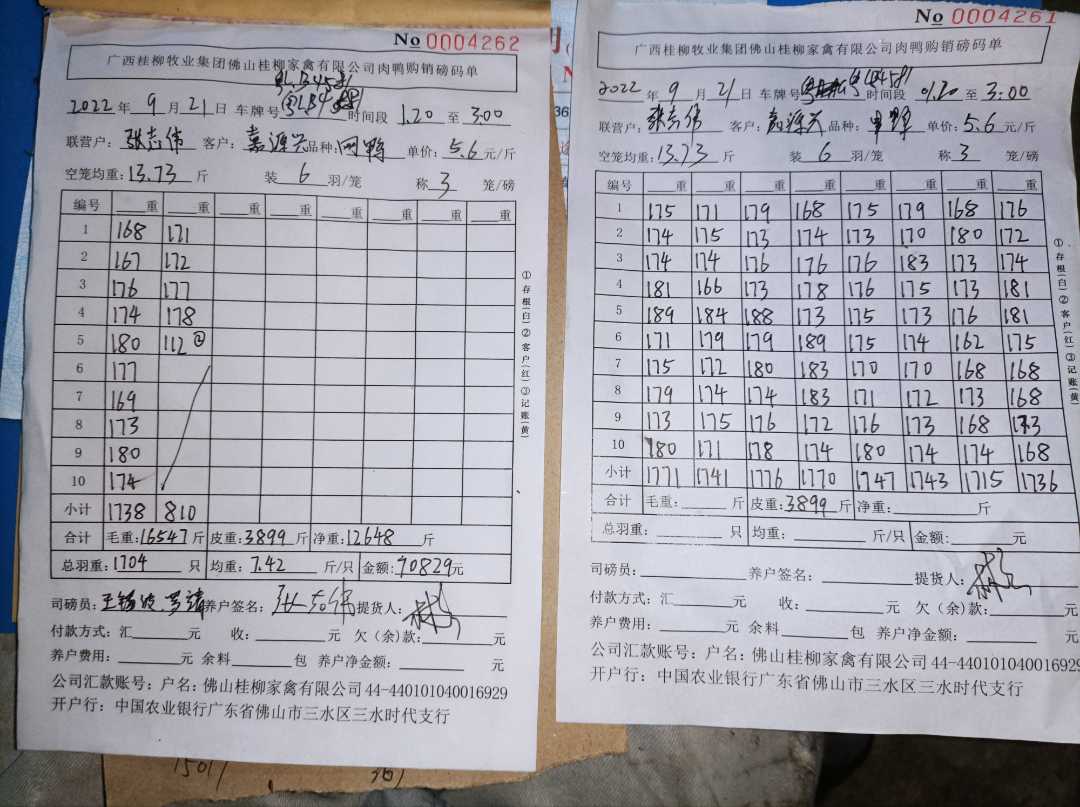 No 0004262
广西桂柳牧业集团佛山桂柳家禽有限公司肉鸭购销磅码单
2022年9月21日 车牌号 时间段 1.20 至 3:00
联营户:张志伟 客户:嘉源兴 品种: 单价:5.6元/斤
空笼均重:13.73斤 装6羽/笼 称3笼/磅
编号 重 重 重 重 重 重 重 重
1 168 171
2 167 172
3 176 177
4 174 178
5 180 112 ②
6 177
7 169
8 173
9 180
10 174
小计 1738 810
合计 毛重:16547斤 皮重:3899斤 净重:12648斤
总羽重:1704只 均重:7.42斤/只 金额:70829元
司磅员: 养户签名: 提货人:
付款方式:汇 元 收: 元 欠(余)款: 元
养户费用: 元 余料 包 养户净金额: 元
公司汇款账号:户名:佛山桂柳家禽有限公司44-440101040016929
开户行:中国农业银行广东省佛山市三水区三水时代支行
①存根(白)②客户(红)③记账(黄)
No 0004261
广西桂柳牧业集团佛山桂柳家禽有限公司肉鸭购销磅码单
2022年9月21日 车牌号 时间段 1.20 至 3:00
联营户:张志伟 客户:嘉源兴 品种: 单价:5.6元/斤
空笼均重:13.73斤 装6羽/笼 称3笼/磅
编号 重 重 重 重 重 重 重 重
1 175 171 179 168 175 179 168 176
2 174 175 173 174 173 170 180 172
3 174 174 176 176 176 183 173 174
4 181 166 173 178 176 175 173 181
5 189 184 188 173 175 173 176 181
6 171 179 179 189 175 174 162 175
7 175 172 180 183 170 170 168 168
8 179 174 174 183 171 172 173 168
9 173 175 176 172 176 173 168 173
10 180 171 178 174 180 174 174 168
小计 1771 1741 1776 1770 1747 1743 1715 1736
合计 毛重: 斤 皮重:3899斤 净重: 斤
总羽重: 只 均重: 斤/只 金额: 元
司磅员: 养户签名: 提货人:
付款方式:汇 元 收: 元 欠(余)款: 元
养户费用: 元 余料 包 养户净金额: 元
公司汇款账号:户名:佛山桂柳家禽有限公司44-440101040016929
开户行:中国农业银行广东省佛山市三水区三水时代支行
①存根(白)②客户(红)③记账(黄)